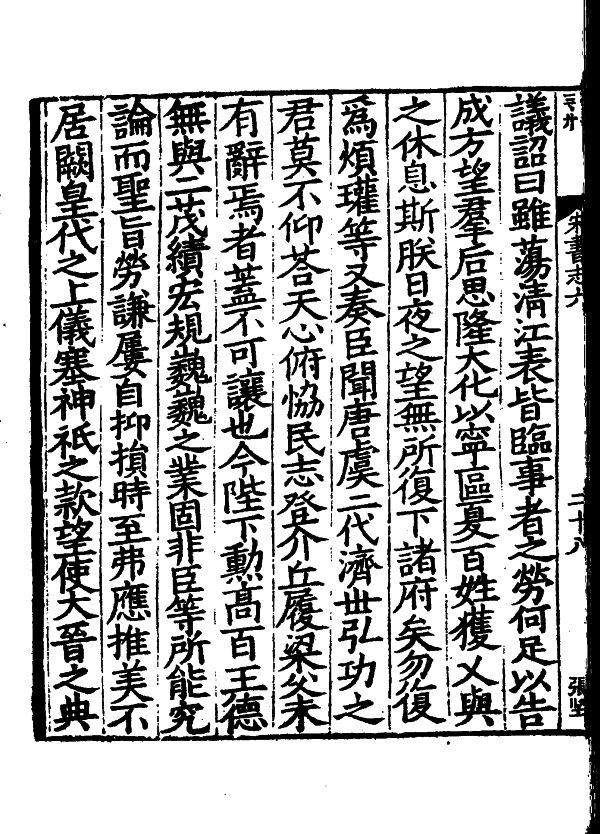 宋書志六
二十八
張堅
議詔曰雖蕩清江表皆臨事者之勞何足以告
成方望羣后思隆大化以寧區夏百姓獲乂與
之休息斯朕日夜之望無所復下諸府矣勿復
爲煩瓘等又奏臣聞唐虞二代濟世弘功之
君莫不仰荅天心俯恊民志登介丘履梁父未
有辭焉者蓋不可讓也今陛下勲髙百王德
無與二茂績宏規巍巍之業固非臣等所能究
論而聖旨勞謙屢自抑損時至弗應推美不
居闕皇代之上儀塞神祇之款望使大晉之典